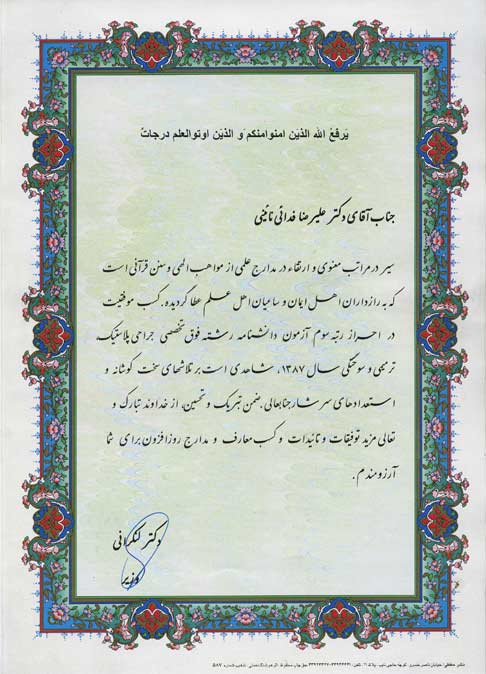 یَرفعُ الله الذیَن امنوامنکم و الذیَن اوتوالعلم درجاتُ
جناب آقای دکتر علیرضا فدائی نائینی
سیر در مراتب معنوی و ارتقاء در مدارج علمی از مواهب الهی و سنن قرآنی است
که به رازداران اهل ایمان و ساعیان اهل علم عطا گردیده. کسب موفقیت
در احراز رتبه سوم آزمون دانشنامه رشته فوق تخصصی جراحی پلاستیک،
ترمیمی و سوختگی سال ۱۳۸۷، شاهدی است بر تلاشهای سخت کوشانه و
استعدادهای سرشار جنابعالی. ضمن تبریک و تحسین، از خداوند تبارک و
تعالی مزید توفیقات و تائیدات و کسب معارف و مدارج روزافزون برای شما
آرزومندم.
دکتر لنکرانی
وزیر